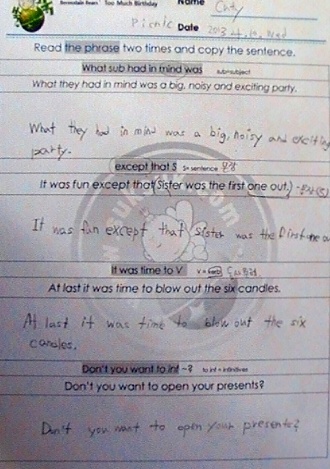 Berenstain Bears Too Much Birthday
Name Cathy
Picnic Date 2013.4.10. Wed
Read the phrase two times and copy the sentence.
What sub had in mind was sub=subject
What they had in mind was a big, noisy and exciting party.
What they had in mind was a big, noisy and exciting
party.
except that S S= sentence 문장
It was fun except that (Sister was the first one out.)
It was fun except that Sister was the first one
It was time to V V= verb
At last it was time to blow out the six candles.
At last it was time to blow out the six
candles.
Don't you want to inf ~? to inf = infinitives
Don't you want to open your presents?
Don't you want to open your presents?